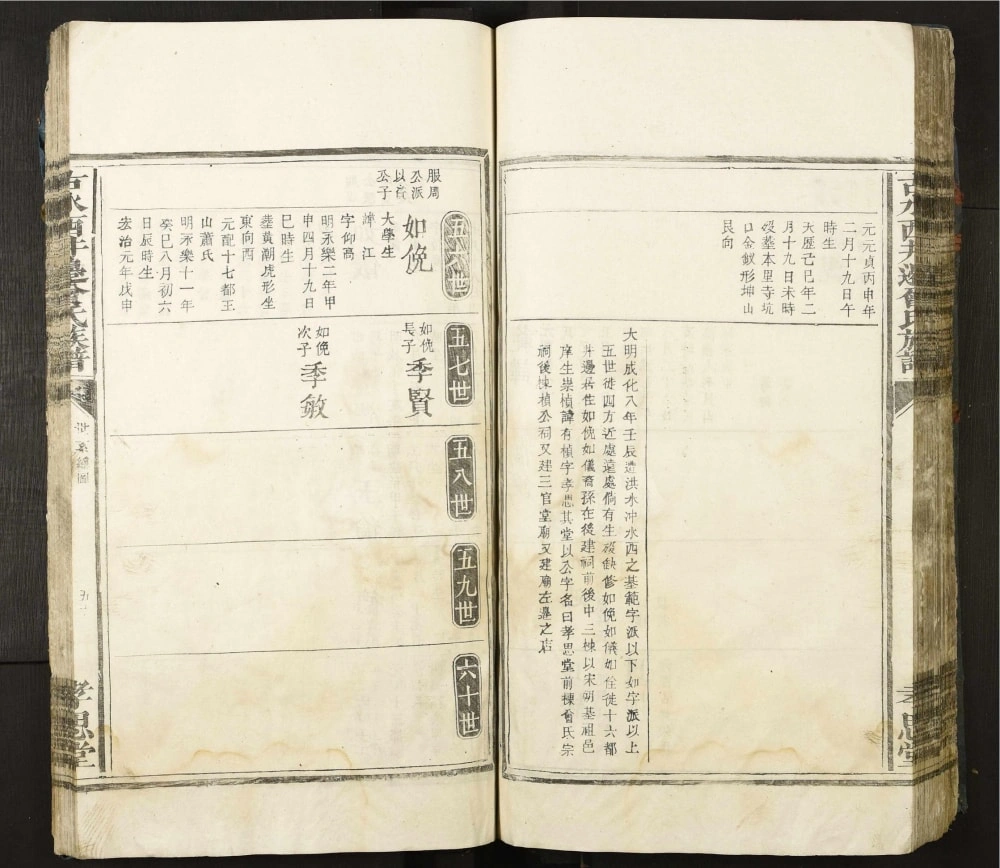 元元貞丙申年
二月十九日午
時生
天歷己巳年二
月十九日未時
歿塟本里寺坑
口金釵形坤山
艮向
大明成化八年壬辰遭洪水冲水西之基範字派以下如字派以上
五世徙四方近處遠處倘有生歿缺修如俛如儀如佺徙十六都
井邊居住如俛如儀裔孫在後建祠前後中三棟以宋朝基祖邑
庠生崇楨諱有楨字孝思其堂以公字名曰孝思堂前棟曾氏宗
祠後棟楨公祠又建三官堂廟又建廟左邊之店
服周
公派
以
公子
五六世
如俛
大學生
諱江
字仰高
明永樂二年甲
申四月十九日
巳時生
塟黄潮虎形坐
東向西
元配十七都王
山蕭氏
明永樂十一年
癸巳八月初六
日辰時生
宏治元年戊申
五七世
如俛
長子
季賢
如俛
次子
季敏
五八世
五九世
六十世
古水西井邊曾氏族譜
孝思堂